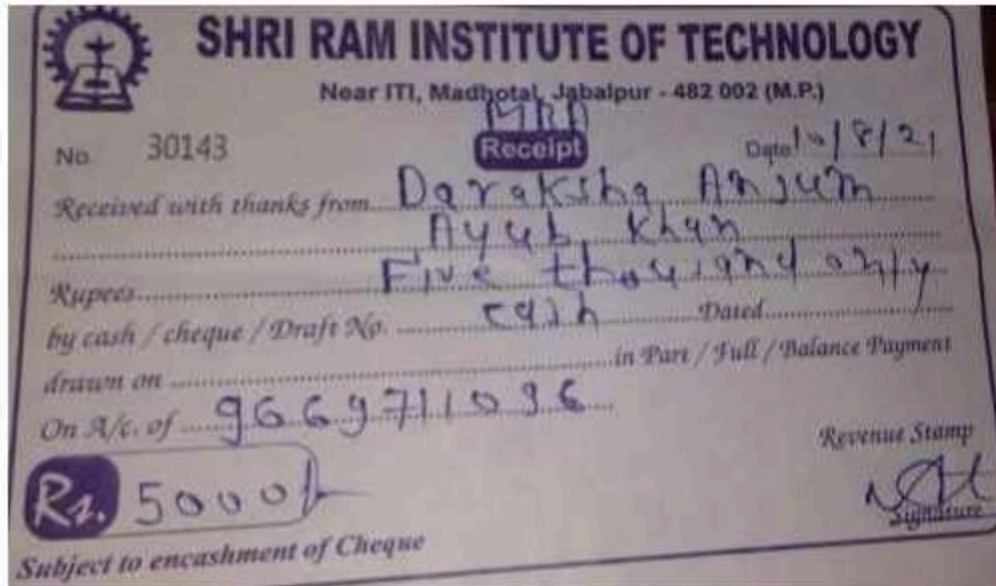 SHRI RAM INSTITUTE OF TECHNOLOGY
Near ITI, Madhotal, Jabalpur - 482 002 (M.P.)
No. 30143 Receipt Date 10/8/21
Received with thanks from Daraksha Anjum
Ayub Khan
Rupees Five thousand only
by cash / cheque / Draft No. cash Dated
drawn on in Part / Full / Balance Payment
On A/c. of 9669711096
Revenue Stamp
Rs. 5000/-
Signature
Subject to encashment of Cheque